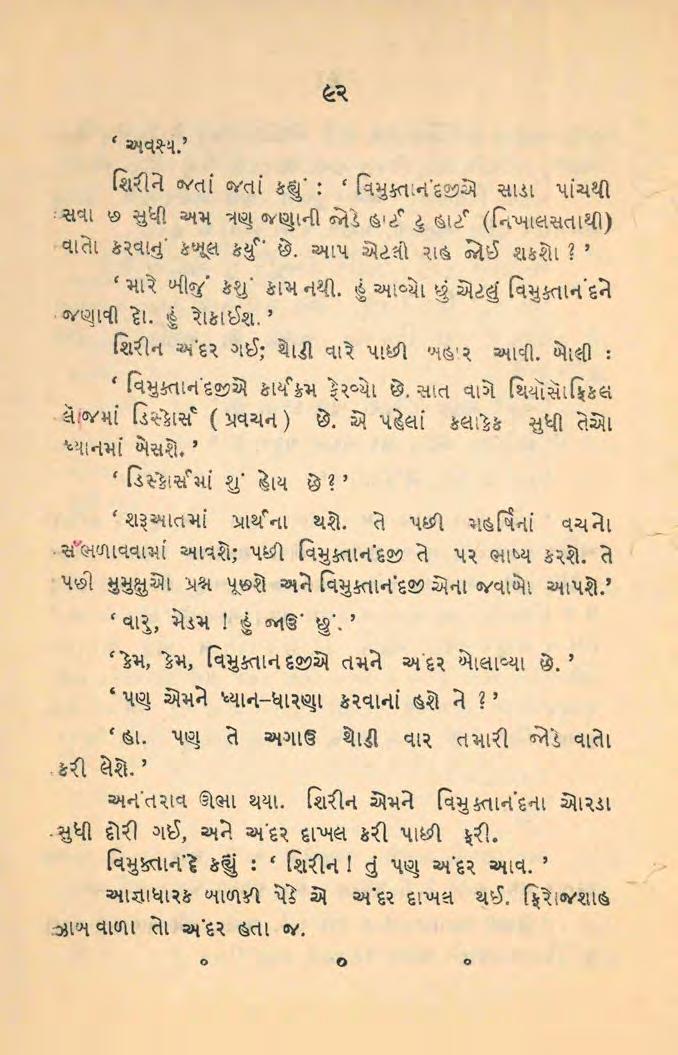 ૯૨
‘ અવશ્ય.’
શિરીને જતાં જતાં કહ્યું : ‘ વિમુક્તાનંદજીએ સાડા પાંચથી
સવા છ સુધી અમ ત્રણ જણાની જોડે હાર્ટ ટુ હાર્ટ (નિખાલસતાથી)
વાતો કરવાનું કબૂલ કર્યું છે. આપ એટલી રાહ જોઈ શકશો ? ’
‘ મારે બીજું કશું કામ નથી. હું આવ્યો છું એટલું વિમુક્તાનંદને
જણાવી દો. હું રોકાઈશ. ’
શિરીન અંદર ગઈ; થોડી વારે પાછી બહાર આવી. બોલી :
‘ વિમુક્તાનંદજીએ કાર્યક્રમ ફેરવ્યો છે. સાત વાગે થિયૉસૉફિકલ
લૉજમાં ડિસ્કોર્સ ( પ્રવચન ) છે. એ પહેલાં કલાકેક સુધી તેઓ
ધ્યાનમાં બેસશે. ’
‘ ડિસ્કોર્સમાં શું હોય છે ? ’
‘ શરૂઆતમાં પ્રાર્થના થશે. તે પછી મહર્ષિનાં વચનો
સંભળાવવામાં આવશે; પછી વિમુક્તાનંદજી તે પર ભાષ્ય કરશે. તે
પછી મુમુક્ષુઓ પ્રશ્ન પૂછશે અને વિમુક્તાનંદજી એના જવાબો આપશે.’
‘ વારુ, મેડમ ! હું જાઉં છું. ’
‘ કેમ, કેમ, વિમુક્તાનંદજીએ તમને અંદર બોલાવ્યા છે. ’
‘ પણ એમને ધ્યાન–ધારણા કરવાનાં હશે ને ? ’
‘ હા. પણ તે અગાઉ થોડી વાર તમારી જોડે વાતો
કરી લેશે. ’
અનંતરાવ ઊભા થયા. શિરીન એમને વિમુક્તાનંદના ઓરડા
સુધી દોરી ગઈ, અને અંદર દાખલ કરી પાછી ફરી.
વિમુક્તાનંદે કહ્યું : ‘ શિરીન ! તું પણ અંદર આવ. ’
આજ્ઞાધારક બાળકી પેઠે એ અંદર દાખલ થઈ. ફિરોજશાહ
ઝાબવાળા તો અંદર હતા જ.
० ० ०